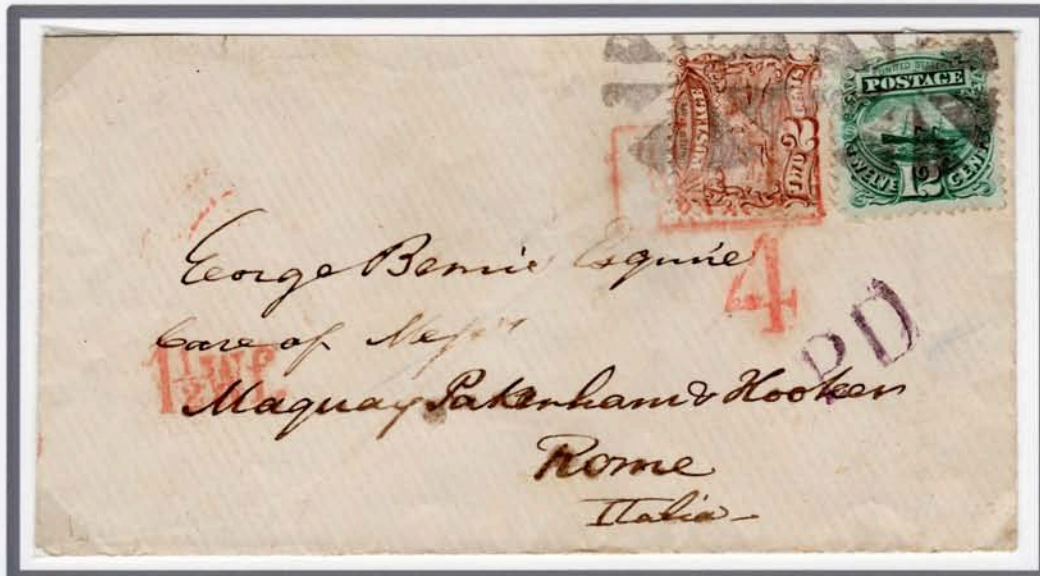 UNITED STATES
POSTAGE
TWELVE 12 CENTS
POSTAGE
TWO 2 CENTS
4
PD
George Bemis Esquire
Care of Mess
Maquay Pakenham & Hooker
Rome
Italia